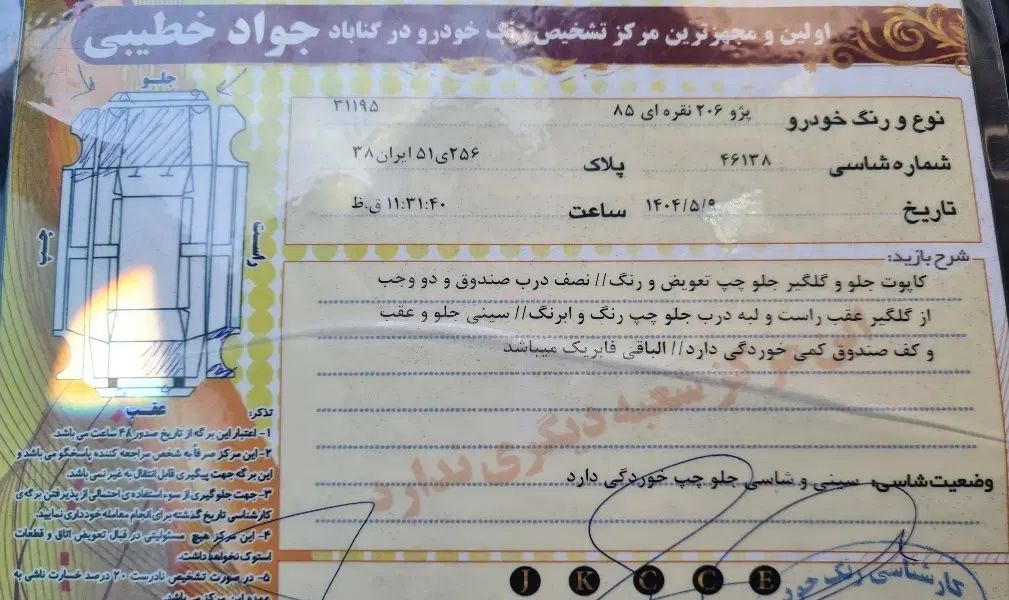 اولین و مجهزترین مرکز تشخیص رنگ خودرو در گناباد جواد خطیبی
نوع و رنگ خودرو پژو ۲۰۶ نقره ای ۸۵ ۳۱۱۹۵
شماره شاسی ۴۶۱۳۸ پلاک ۲۵۶ی۵۱ ایران۳۸
تاریخ ۱۴۰۴/۵/۹ ساعت ۱۱:۳۱:۴۰ ق.ظ
شرح بازید:
کاپوت جلو و گلگیر جلو چپ تعویض و رنگ// نصف درب صندوق و دو وجب
از گلگیر عقب راست و لبه درب جلو چپ رنگ و ابرنگ// سینی جلو و عقب
و کف صندوق کمی خوردگی دارد// الباقی فابریک میباشد
این مرکز شعبه دیگری ندارد
وضعیت شاسی: سینی و شاسی جلو چپ خوردگی دارد
J K C C E
کارشناسی رنگ خودر
جلو
چپ
راست
عقب
تذکر:
۱- اعتبار این برگه از تاریخ صدور ۴۸ ساعت می باشد.
۲- این مرکز صرفاً به شخص مراجعه کننده پاسخگو می باشد و
این برگه جهت پیگیری قابل انتقال به غیر نمی باشد.
۳- جهت جلوگیری از سوء استفاده ی احتمالی از پذیرفتن برگه ی
کارشناسی تاریخ گذشته برای انجام معامله خودداری نمایید.
۴- این مرکز هیچ مسئولیتی در قبال تعویض اتاق و قطعات
استوک نخواهد داشت.
۵- در صورت تشخیص نادرست ۲۰ درصد خسارت ناشی به
عهده این مرکز می باشد.